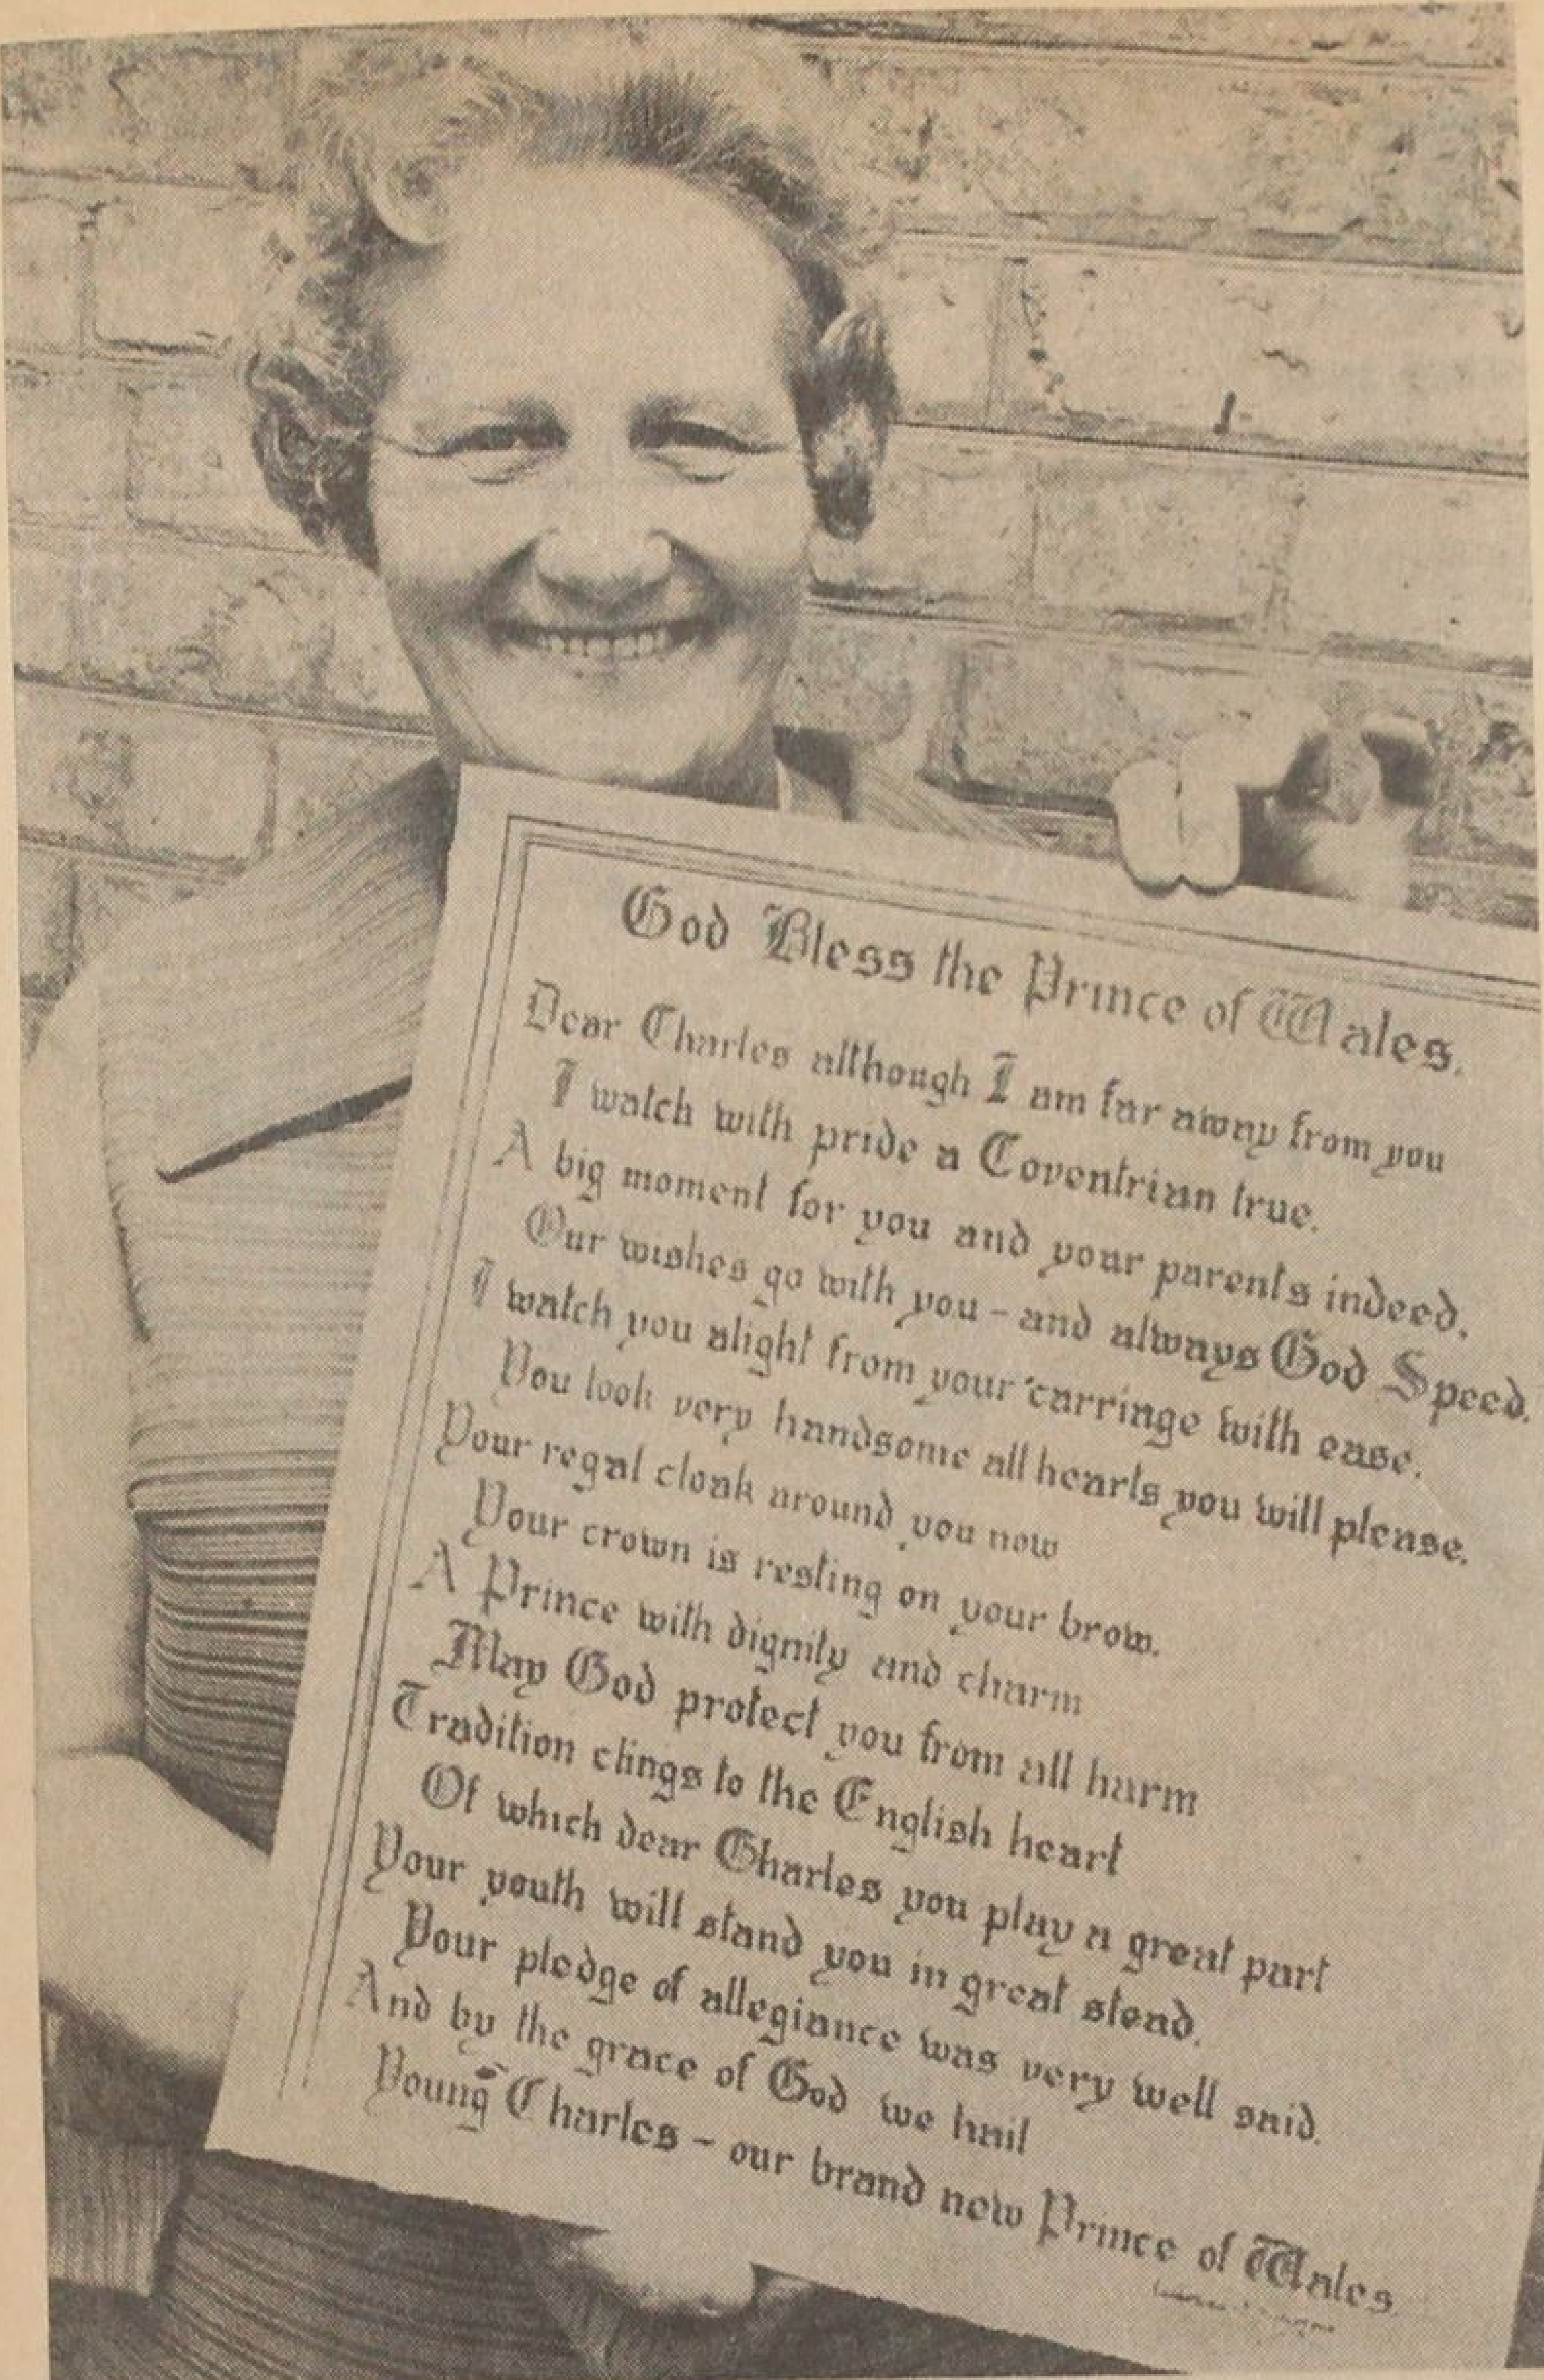 God Bless the Prince of Wales.
Dear Charles although I am far away from you
I watch with pride a Coventrian true.
A big moment for you and your parents indeed.
Our wishes go with you - and always God Speed.
I watch you alight from your carriage with ease.
You look very handsome all hearts you will please.
Your regal cloak around you now
Your crown is resting on your brow.
A Prince with dignity and charm
May God protect you from all harm
Tradition clings to the English heart
Of which dear Charles you play a great part
Your youth will stand you in great stead.
Your pledge of allegiance was very well said.
And by the grace of God we hail
Young Charles - our brand new Prince of Wales